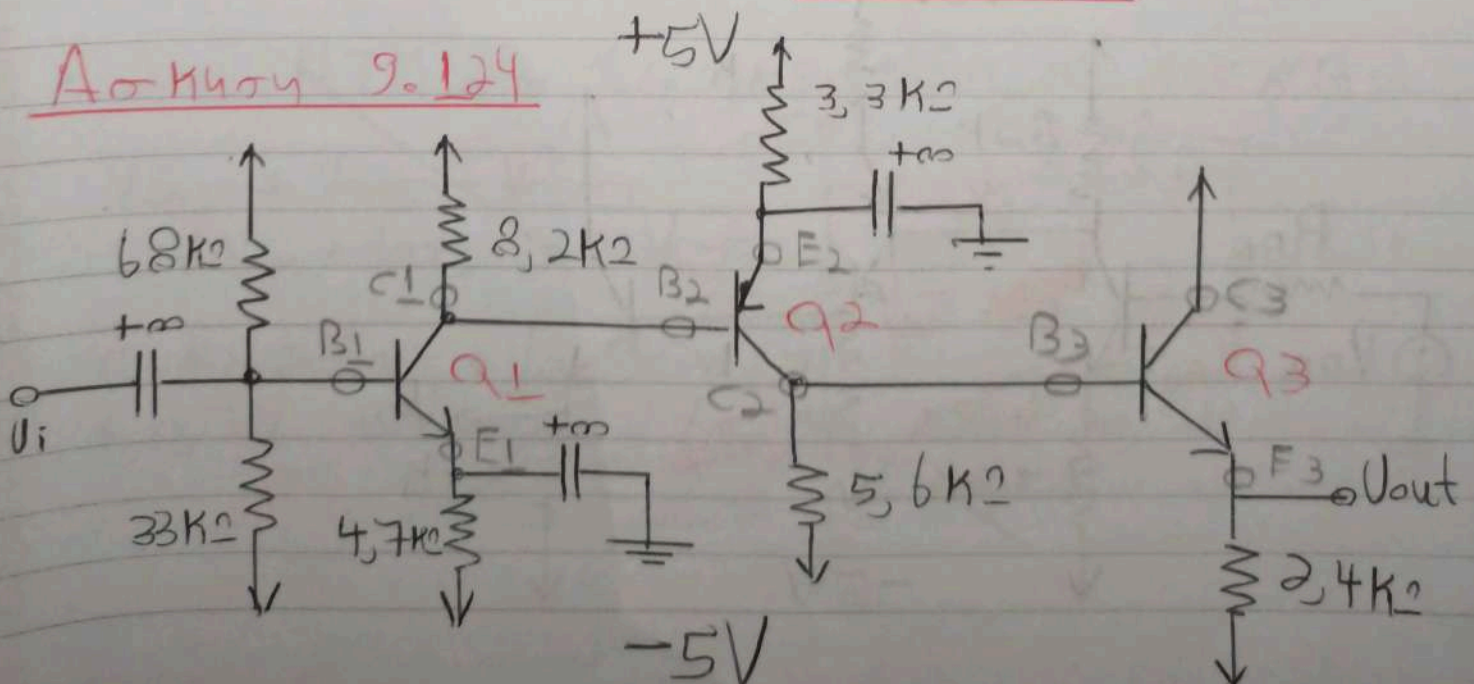 Άσκηση 9.124
+5V
3,3KΩ
+∞
68KΩ
8,2KΩ
C1
B2
E2
Q2
C3
+∞
B1
Q1
C2
B3
Q3
Ui
E1
+∞
5,6KΩ
E3
Uout
33KΩ
4,7KΩ
2,4KΩ
-5V